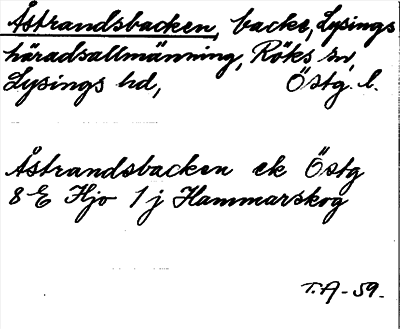 Åstrandsbacken, backe, Lysings
häradsallmänning, Röks sn,
Lysings hd, Östg. l.
Åstrandsbacken ek Östg
8 E Hjo 1 j Hammarskog
T.A-59.